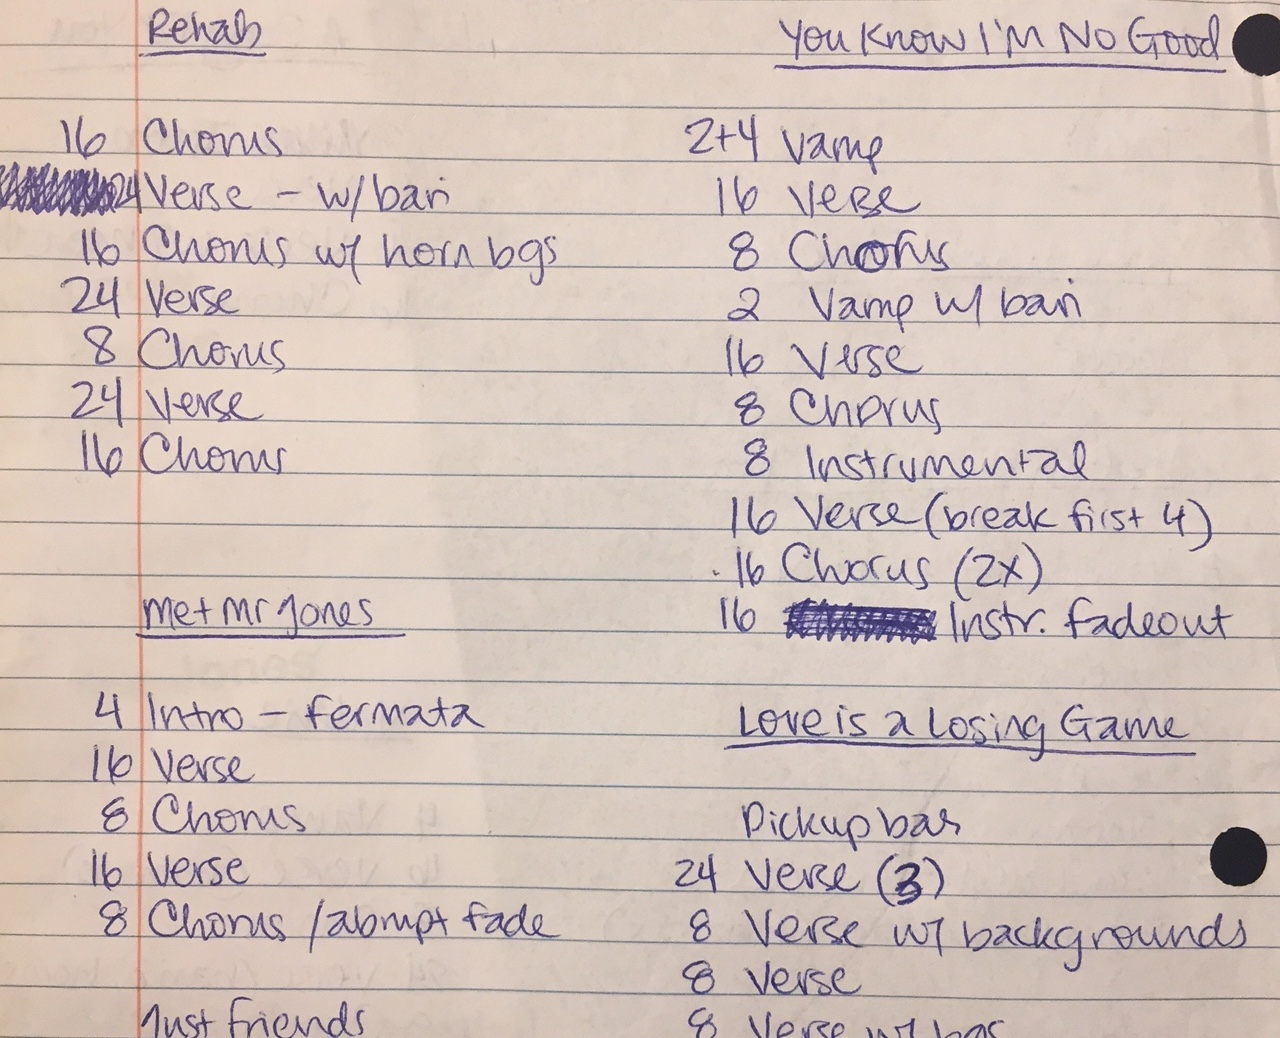 Rehab
16 Chorus
24 Verse - w/ bari
16 Chorus w/ horn bgs
24 Verse
8 Chorus
24 Verse
16 Chorus
Met Mr Jones
4 Intro - fermata
16 Verse
8 Chorus
16 Verse
8 Chorus / abrupt fade
Just friends
You Know I'm No Good
2+4 Vamp
16 Verse
8 Chorus
2 Vamp w/ bari
16 Verse
8 Chorus
8 Instrumental
16 Verse (break first 4)
16 Chorus (2x)
16 Instr. fadeout
Love is a Losing Game
Pickup bar
24 Verse (3)
8 Verse w/ backgrounds
8 Verse
8 Verse w/ bgs